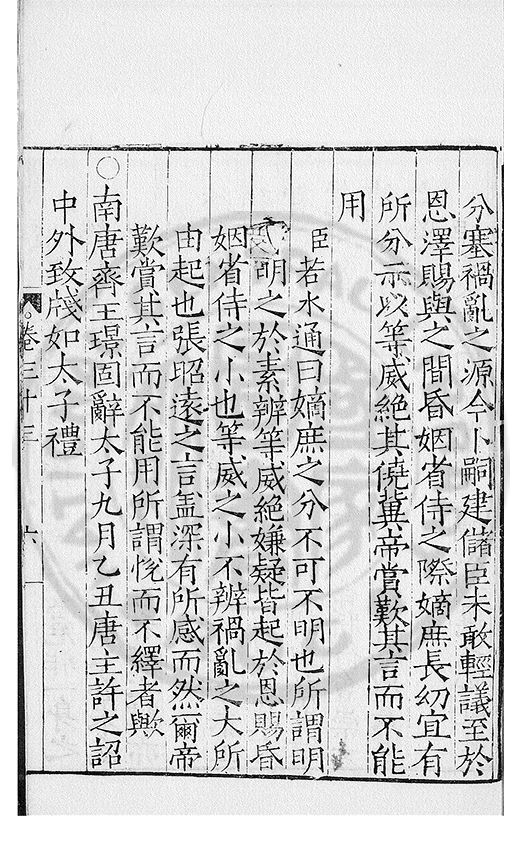 分塞禍亂之源今卜嗣建儲臣未敢輕議至於
恩澤賜與之間昏姻省侍之際嫡庶長㓜宜有
所分示以等威絶其僥冀帝賞歎其言而不能
用
臣若水通曰嫡庶之分不可不明也所謂明
明之於素辨等威絶嫌疑皆起於恩賜昏
姻省侍之小也等威之小不辨禍亂之大所
由起也張昭遠之言盖深有所感而然爾帝
歎賞其言而不能用所謂恱而不繹者歟
○南唐齊王璟固辭太子九月乙丑唐主許之詔
中外致牋如太子禮
卷三十三 六